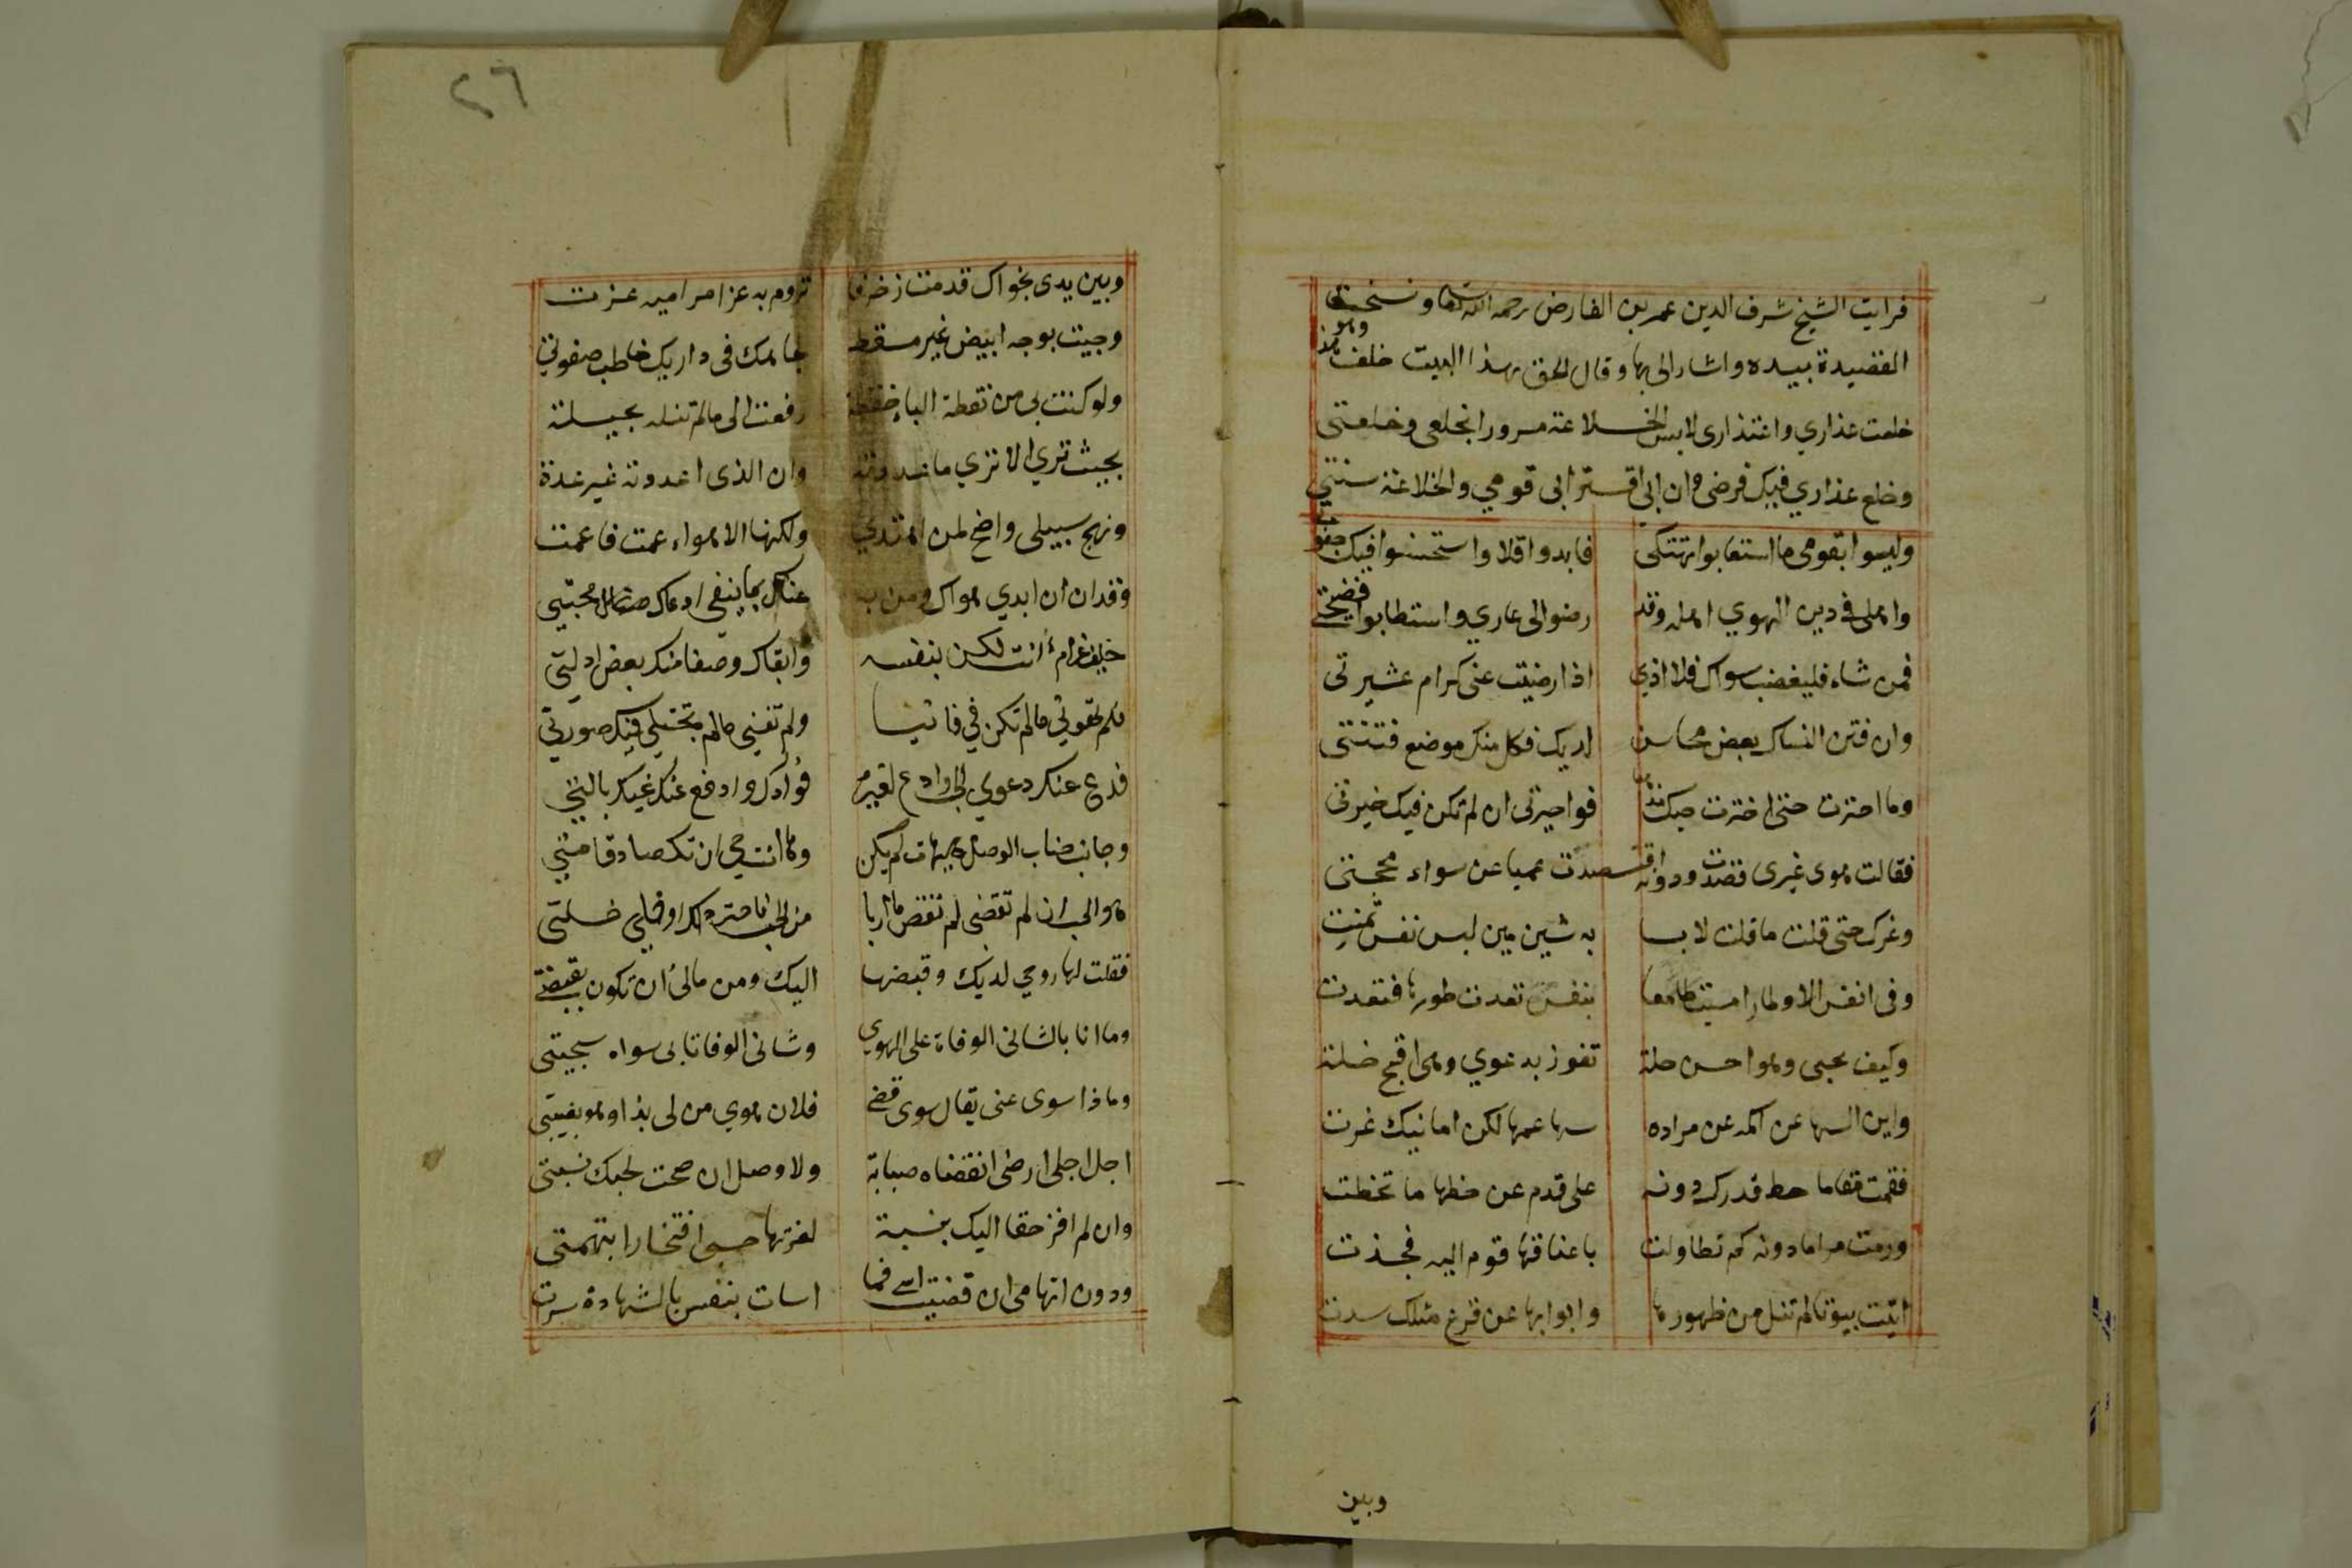 فرايت الشيخ شرف الدين عمر بن الفارض رحمه الله تعالى ونسختها
القصيدة بيده واشار الى بها وقال الحق بهذا البيت خلف وهو هذا
خلعت عذاري واعتذارى لابس الخلاعة مسرورا بخلعى وخلعتى
وخلع عذاري فيك فرضى وان ابى اقترابى قومي والخلاعة سنتي
وليسوا بقومى ما استعابوا تهتكى فابدوا قلا واستحسنوا فيك جفوتى
واهلى فى دين الهوي اهله وقد رضوا لى عاري واستطابوا فضيحتي
فمن شاء فليغضب سواك فلا اذي اذا رضيت عنى كرام عشيرتى
وان فتن النساك بعض محاسن لديك فكل منك موضع فتنتى
وما احترت حتى اخترت حبك مذهبا فواحيرتى ان لم تكن فيك خيرتى
فقالت هوى غيرى قصدت ودونه اقتصدت عميا عن سواء محجتى
وغرك حتى قلت ما قلت لابسا به شين مين لبس نفس تمنت
وفى انفس الاوطار امسيت طامعا بنفس تعدت طورها فتعدت
وكيف بحبى وهو احسن خلة تفوز بدعوي وهى اقبح خلة
واين السها عن اكمه عن مراده سها عمها لكن امانيك غرت
فقمت مقاما حط قدرك دونه على قدم عن حظها ما تخطت
ورمت مراما دونه كم تطاولت باعناقها قوم اليه فجذت
اتيت بيوتا لم تنل من ظهورها وابوابها عن قرع مثلك سدت
وبين
٢٦
وبين يدى نجواك قدمت زخرفا تروم به عزا مراميه عزت
وجيت بوجه ابيض غير مسقط لجاهك فى داريك خاطب صفوتي
ولو كنت بى من نقطة الباء خفضة رفعت الى ما لم تنله بحيلة
بحيث تري الا تري ما عددته وان الذى اعددته غير عدة
ونهج سبيلى واضح لمن اهتدي ولكنها الاهواء عمت فاعمت
وقد ان ان ابدي هواك ومن به عناك بما ينفى ادعاك محبتي
حليف غرام انت لكن بنفسه وابقاك وصفا منك بعض ادلتي
فلم تهونى ما لم تكن في فانيا ولم تفنى ما لم تجتلى فيك صورتي
فدع عنك دعوي الحب وادع لغيره فؤادك وادفع عنك غيك بالتي
وجانب جناب الوصل هيهات لم يكن وها انت حي ان تكن صادقا متي
هو الحب ان لم تقضى لم تقض ماربا من الحب فاختر ذلك او خلي خلتى
فقلت لها روحي لديك وقبضها اليك ومن مالى ان تكون بقبضتي
وما انا بالشانى الوفاة على الهوي وشانى الوفا تابى سواه سجيتى
وماذا سوى عنى يقال سوى قضى فلان هوي من لى بذا وهو بغيتى
اجل اجلى ارضى انقضاه صبابة ولا وصل ان صحت لحبك نسبتى
وان لم افز حقا اليك بنسبة لعزتها حسبى افتخارا بتهمتى
ودون اتهامى ان قضيت اسى فما اسات بنفس بالشهادة سرت